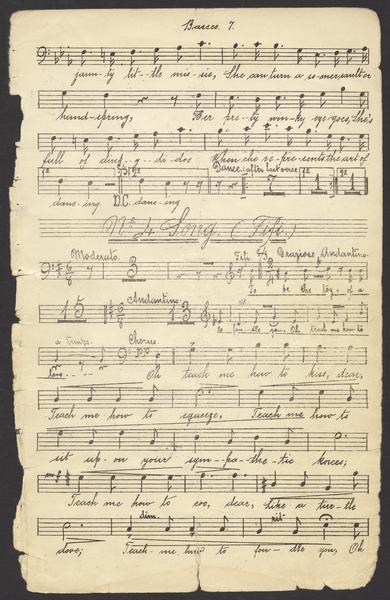 Basso. 7.
jaun-ty lit-tle mis-sie, She can turn a somersault or
hand-spring, Her pre-ty win-ky eye goes, She's
full of dind-g--di-dos When she re-presents the art of
Dance: (after last verse)
7 1 1
danc-ing D.C. danc-ing
No 4 Song. (Fifi.)
Moderato. 3 Fifi Grazioso Andantino.
To be the toy of a
15 Andantino. 13
to fon-dle you, Oh teach me how to
a tempo. Chorus.
love---- Oh teach me how to kiss, dear,
Teach me how to squeeze, Teach me how to
sit up-on your sym-pa-the-tic knees;
Teach me how to coo, dear, Like a tur-tle
dim. rit
dove; Teach-me how to fon-dle you, Oh